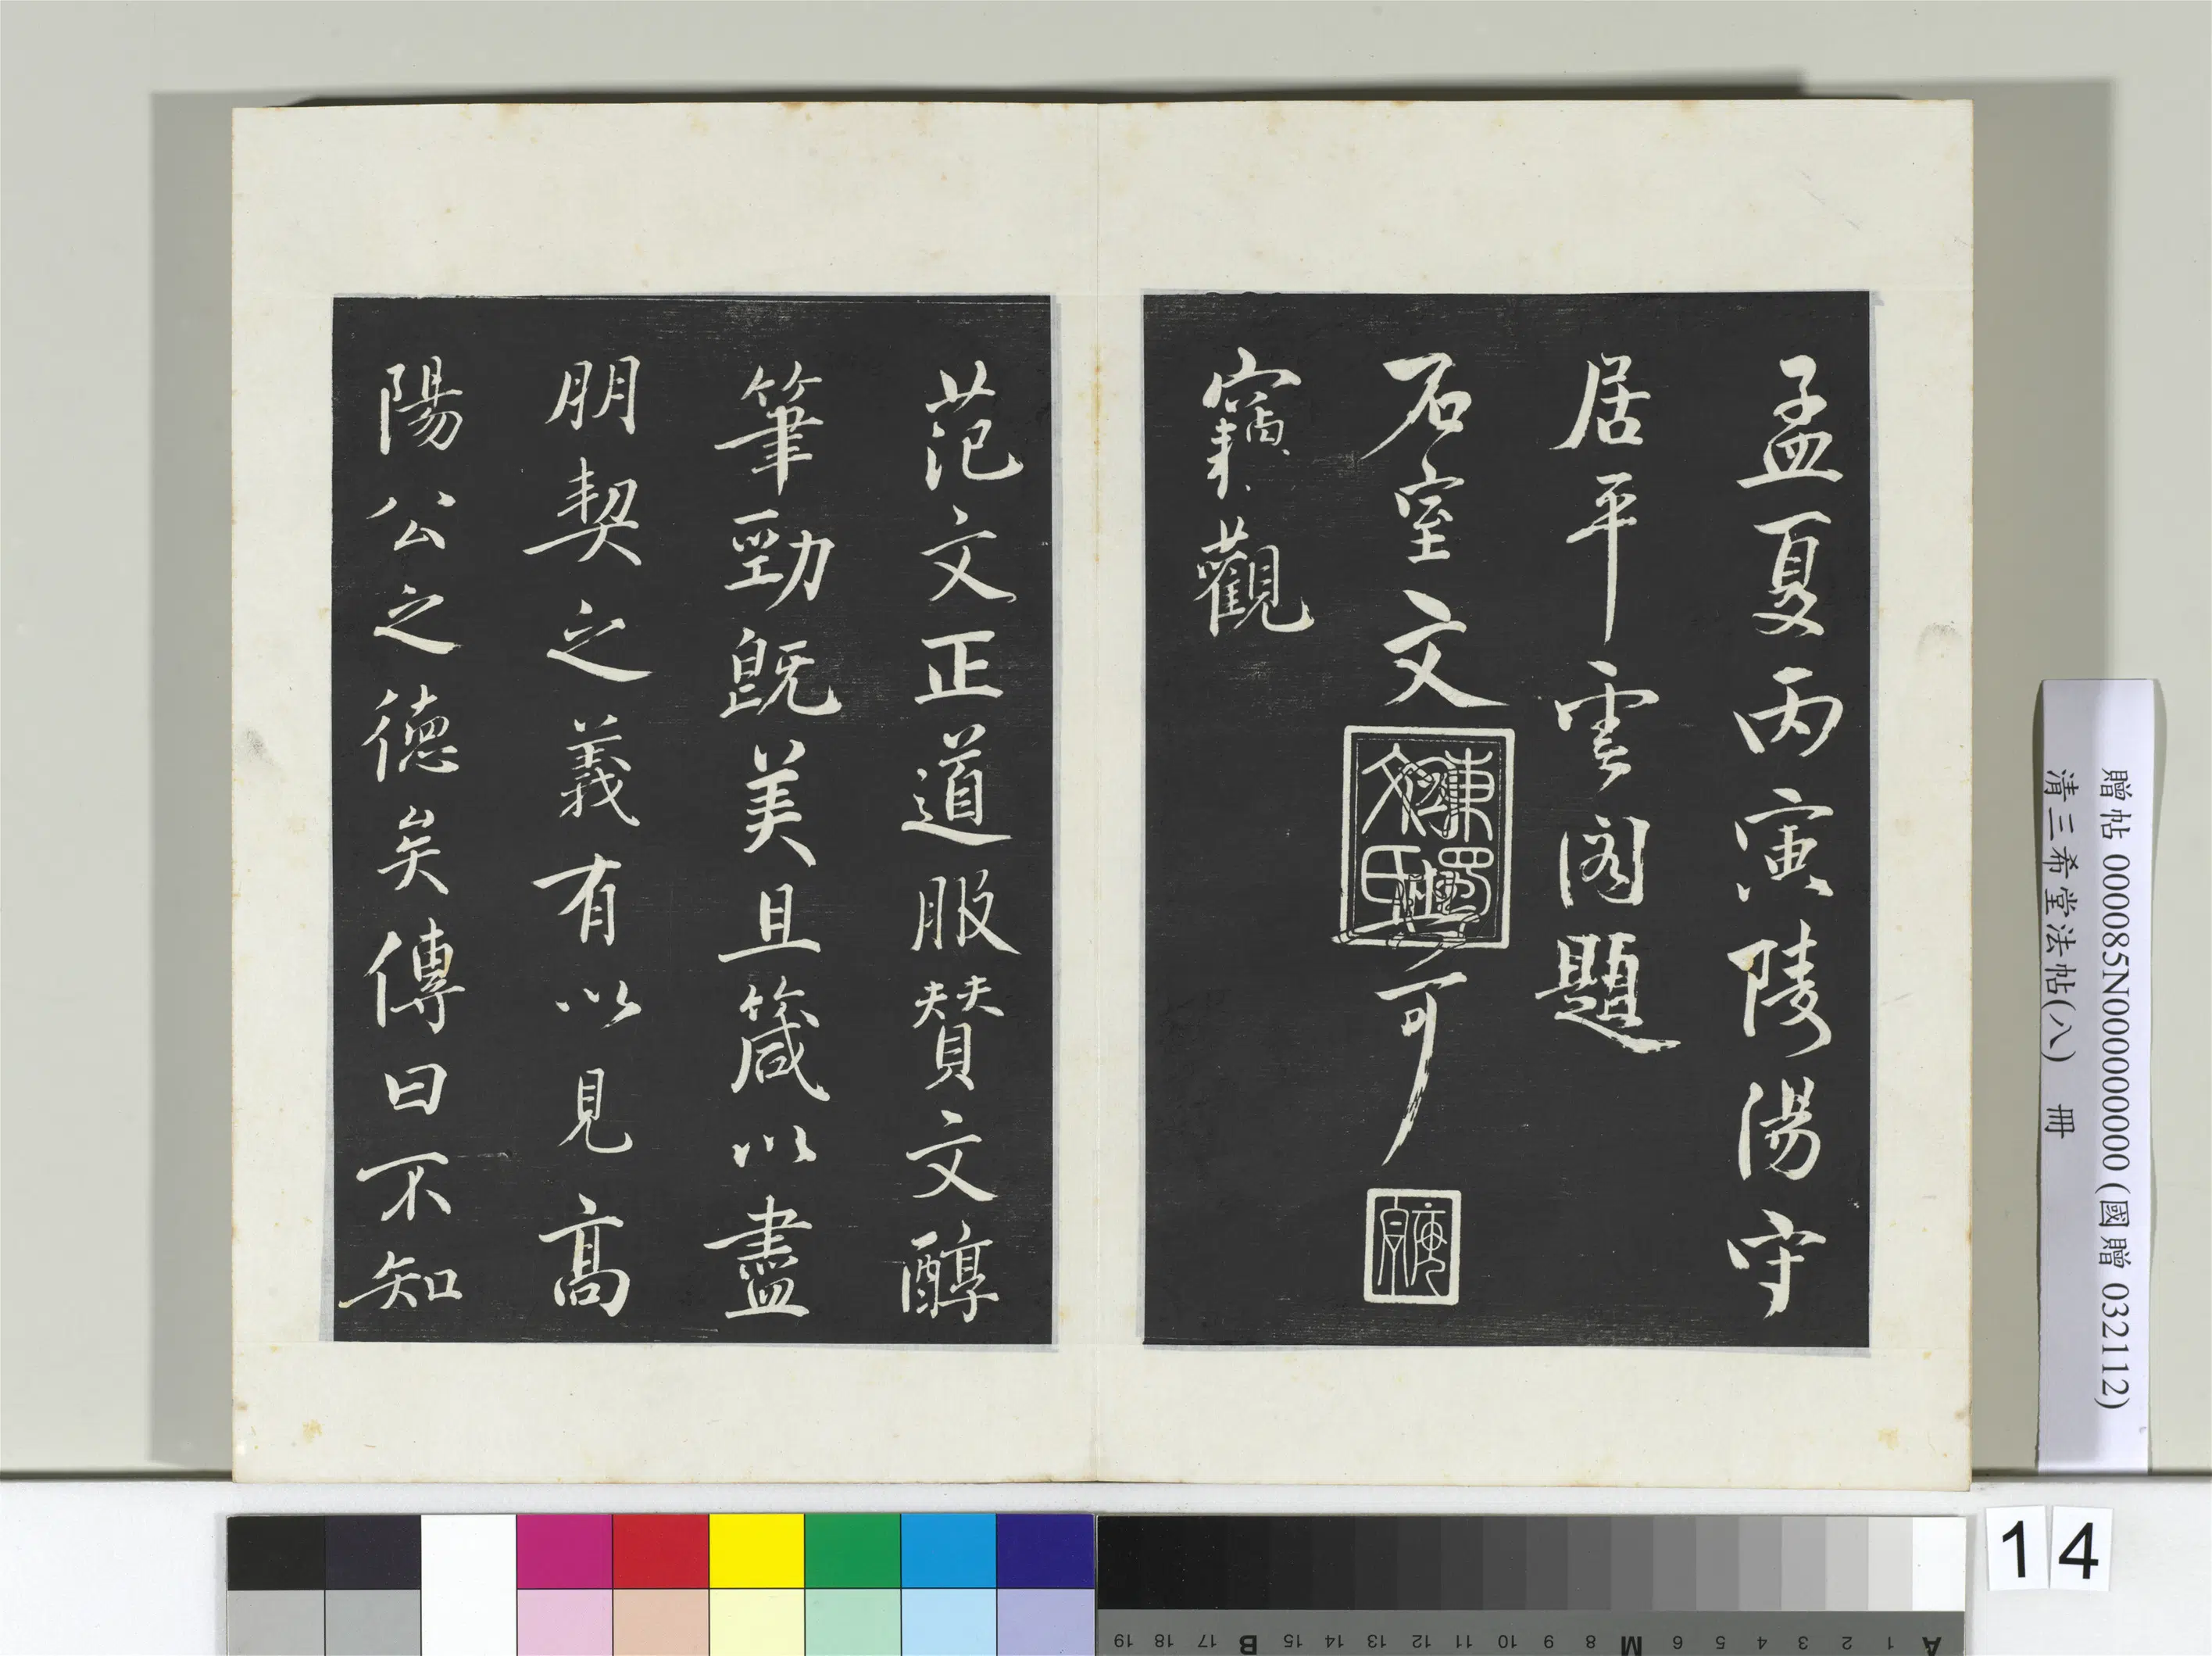 孟夏丙寅陵陽守
居平雲閣題
石室文
東蜀文氏
與可
竊觀
范文正道服贊文醇
筆勁既美且箴以盡
朋契之義有以見高
陽公之德矣傳曰不知
贈帖 000085N000000000 (國贈 032112)
清三希堂法帖(八) 冊
14
A 1 2 3 4 5 6 M 8 9 10 11 12 13 14 15 B 17 18 19